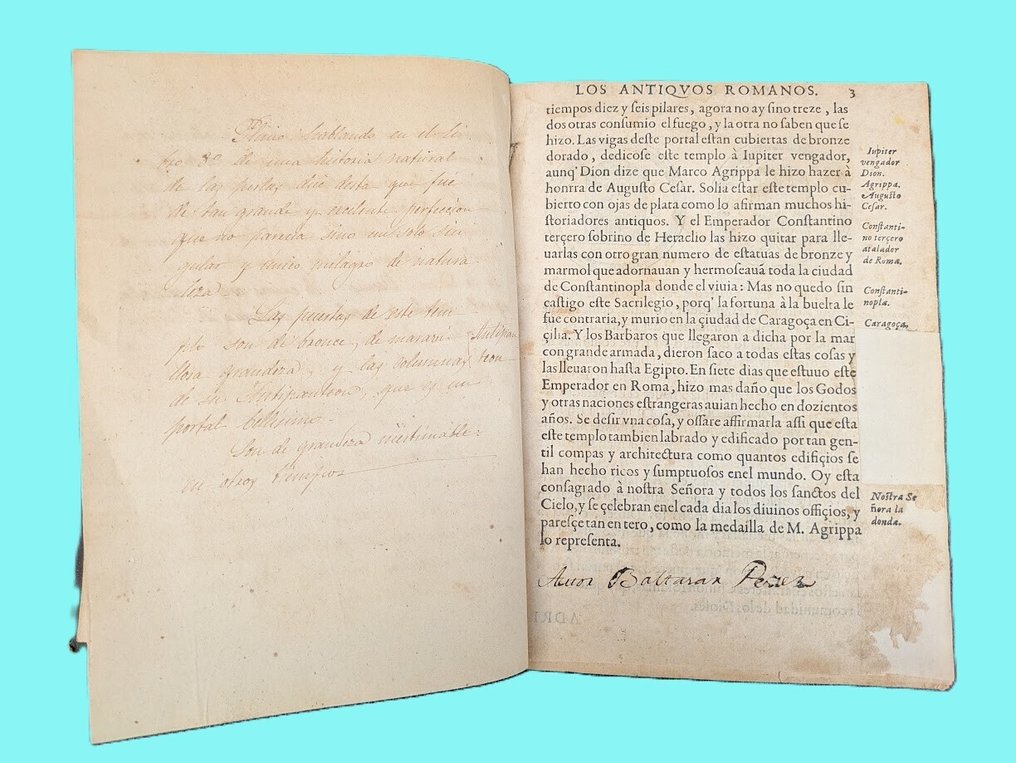 Plinio hablando en el Li-
bro 8º de una historia natural
de las pistas dice desta que fue
de tan grande y excelente perfeccion
que no parecia sino un solo sin
gular y unico milagro de natura
leza.
Las puertas de este tem
plo son de bronce, de maravi-
llosa grandeza, y las columnas
de su Antipanteon, que es un
portal bellisimo.
Son de grandeza inestimable
en otros tiempos
Antipan
teon
LOS ANTIQVOS ROMANOS. 3
tiempos diez y seis pilares, agora no ay sino treze, las
dos otras consumio el fuego, y la otra no saben que se
hizo. Las vigas deste portal estan cubiertas de bronze
dorado, dedicose este templo à Iupiter vengador,
aunq́ Dion dize que Marco Agrippa le hizo hazer à
honrra de Augusto Cesar. Solia estar este templo cu-
bierto con ojas de plata como lo afirman muchos hi-
storiadores antiquos. Y el Emperador Constantino
terçero sobrino de Heraclio las hizo quitar para lle-
uarlas con otro gran numero de estatuas de bronze y
marmol que adornauan y hermoseauã toda la ciudad
de Constantinopla donde el viuia: Mas no quedo sin
castigo este Sacrilegio, porq́ la fortuna à la buelta le
fue contraria, y murio en la çiudad de Caragoça en Ci-
çilia. Y los Barbaros que llegaron a dicha por la mar
con grande armada, dieron saco a todas estas cosas y
las lleuaron hasta Egipto. En siete dias que estuuo este
Emperador en Roma, hizo mas daño que los Godos
y otras naciones estrangeras auian hecho en dozientos
años. Se desir vna cosa, y ossare affirmarla assi que esta
este templo tambien labrado y edificado por tan gen-
til compas y architectura como quantos edifiçios se
han hecho ricos y sumptuosos enel mundo. Oy esta
consagrado à nostra Señora y todos los sanctos del
Cielo, y se çelebran enel cada dia los diuinos offiçios, y
paresçe tan en tero, como la medailla de M. Agrippa
lo representa.
Iupiter
vengador
Dion.
Agrippa.
Augusto
Cesar.
Constanti-
no terçero
atalador
de Roma.
Constanti-
nopla.
Caragoça,
Nostra Se
ñora la
donda.
Autor Baltasar Perez
ADRI